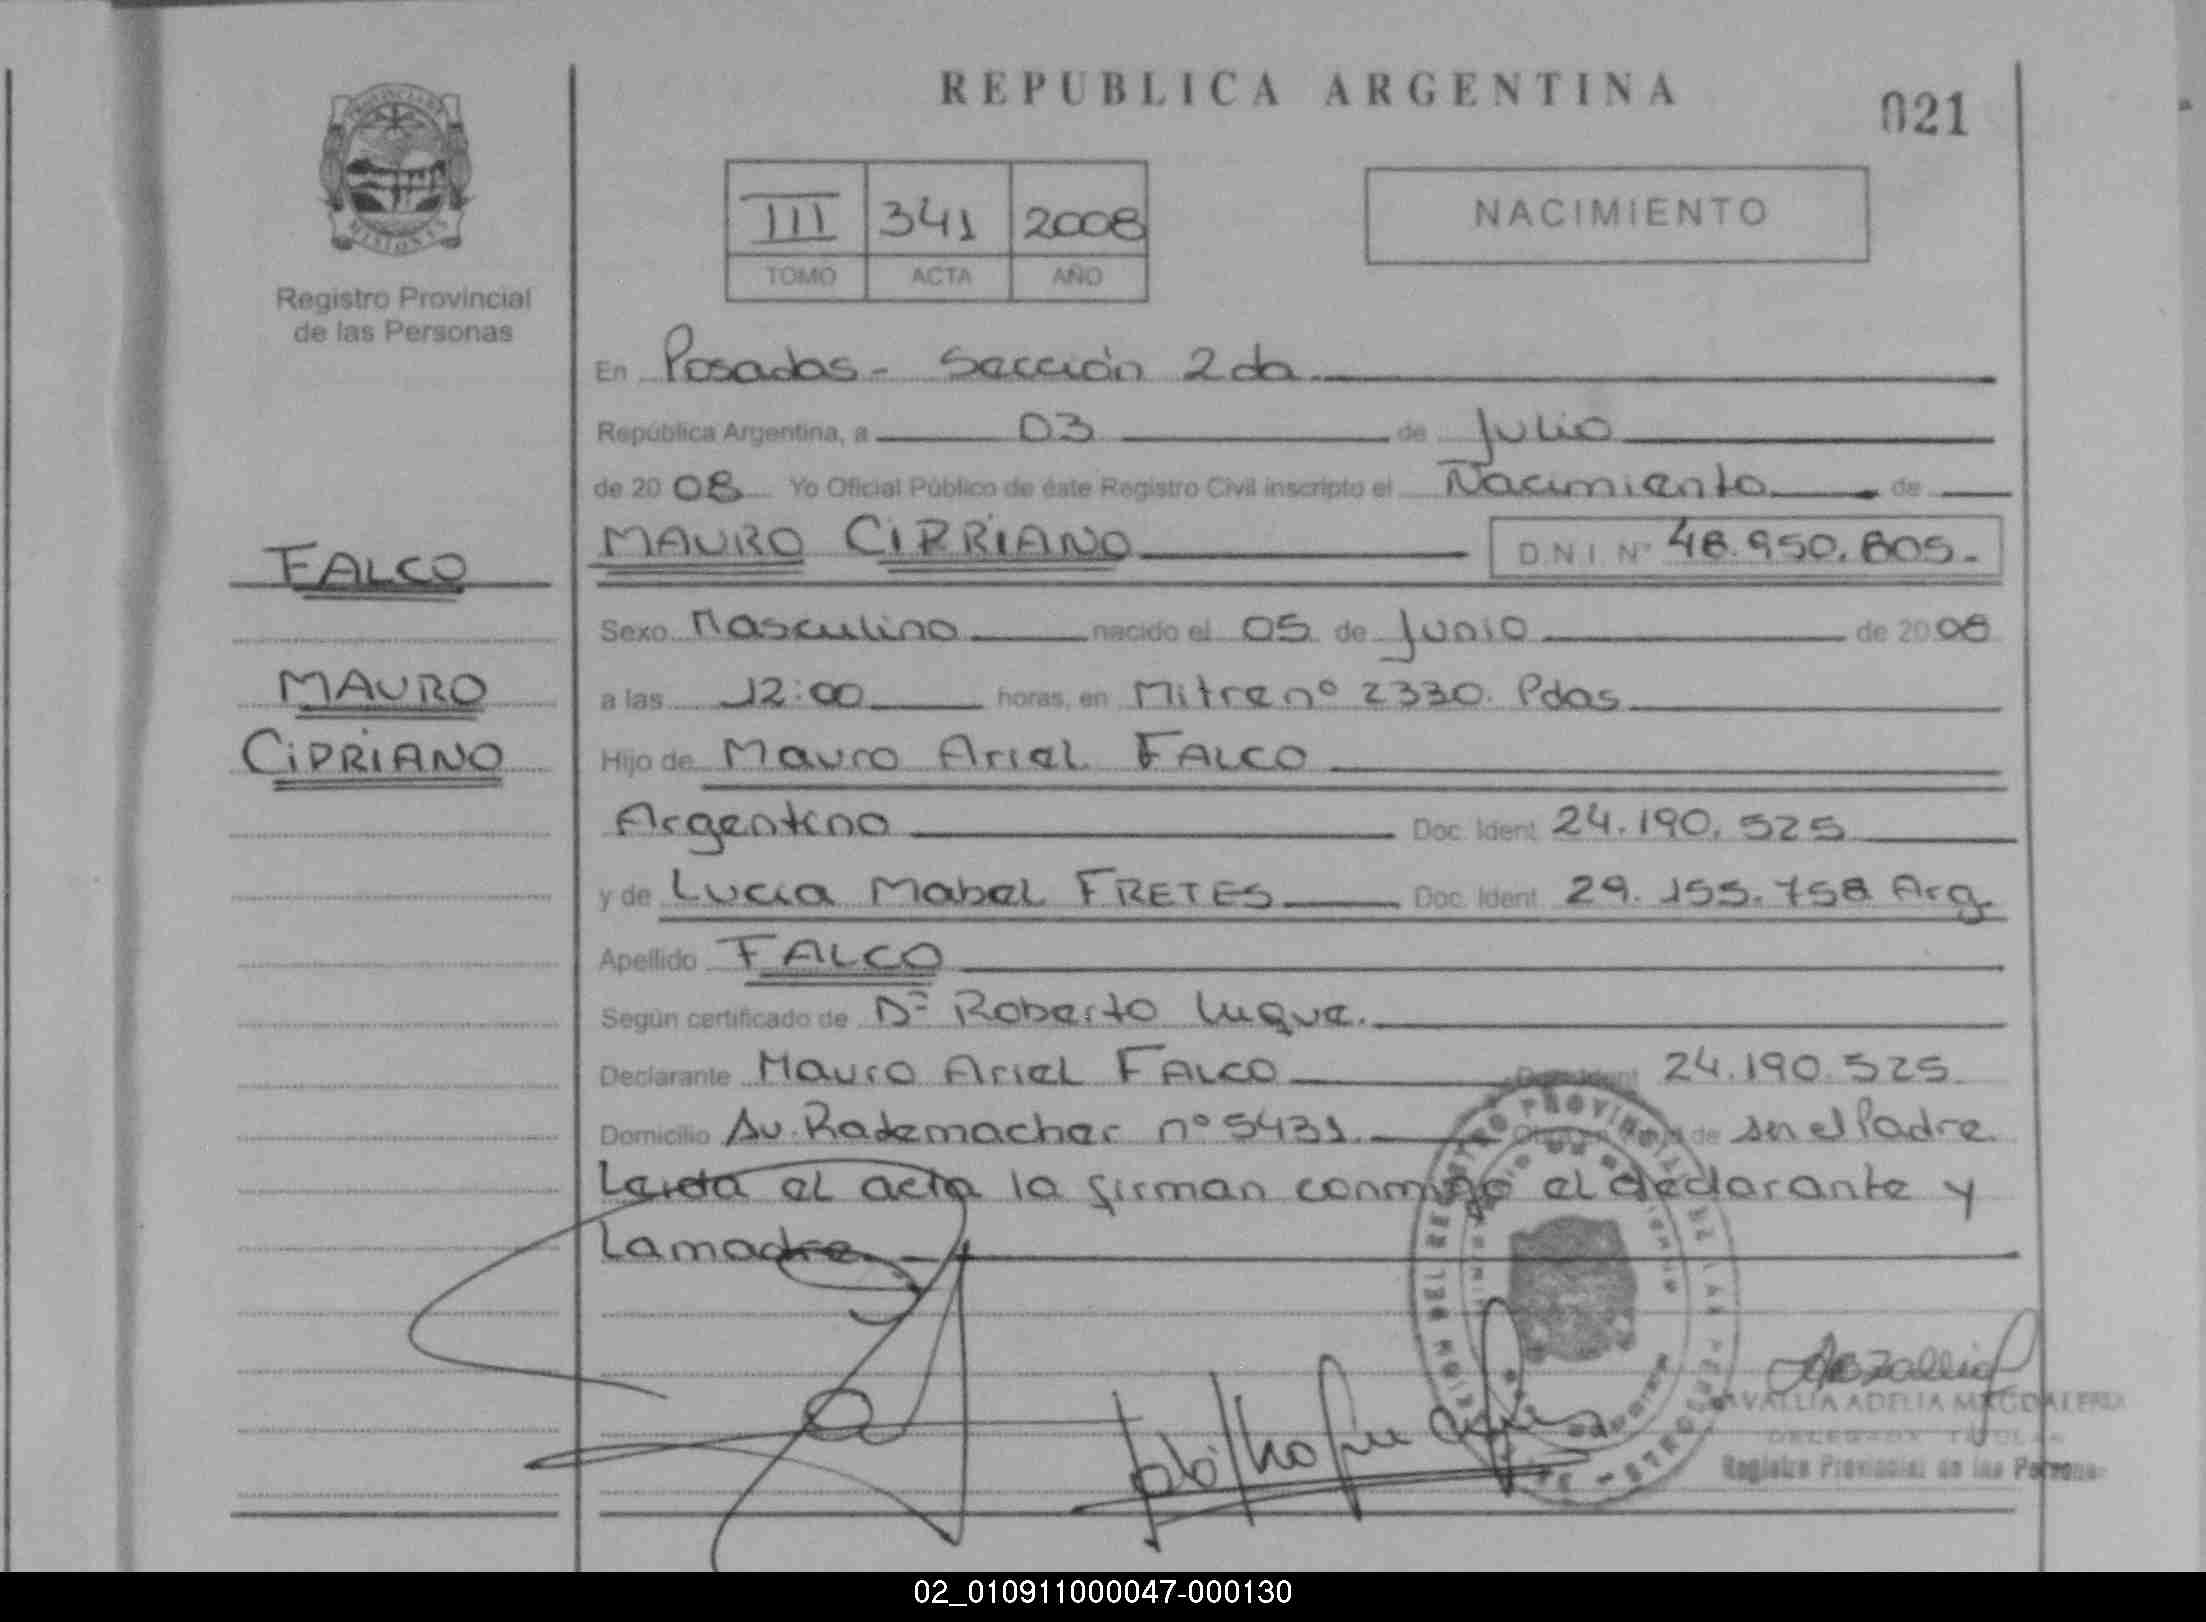 REPUBLICA ARGENTINA
021
PROVINCIA DE
MISIONES
Registro Provincial
de las Personas
III 341 2008
TOMO ACTA AÑO
NACIMIENTO
En Posadas - Sección 2da
República Argentina, a 03 de Julio
de 2008 Yo Oficial Público de éste Registro Civil inscripto el Nacimiento de
FALCO
MAURO CIPRIANO D.N.I. Nº 48.950.805.-
Sexo Masculino nacido el 05 de Junio de 2008
MAURO
a las 12:00 horas, en Mitre nº 2330. Pdas
CIPRIANO
Hijo de Mauro Ariel FALCO
Argentino Doc. Ident. 24.190.525
y de Lucia Mabel FRETES Doc. Ident. 29.155.758 Arg.
Apellido FALCO
Según certificado de Dr Roberto Luque.
Declarante Mauro Ariel FALCO 24.190.525
Domicilio Av. Rademacher nº 5431 de ser el Padre.
Leida el acta la firman conmigo el declarante y
La madre
ADELIA MAGDALENA
DELEGADA TITULAR
Registro Provincial de las Personas
02_010911000047-000130